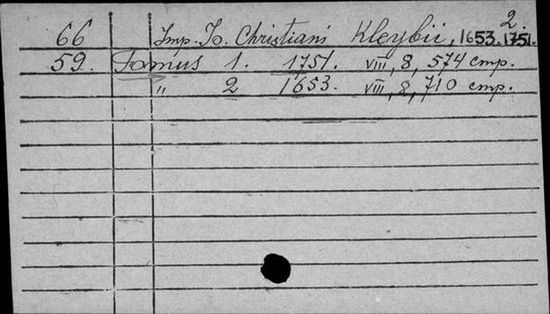 2.
66 Imp. Io. Christiani Kleybii, 1653.1751.
59. Tomus 1. 1751. VIII, 8, 574 cmp.
" 2 1653. VIII, 8, 710 cmp.